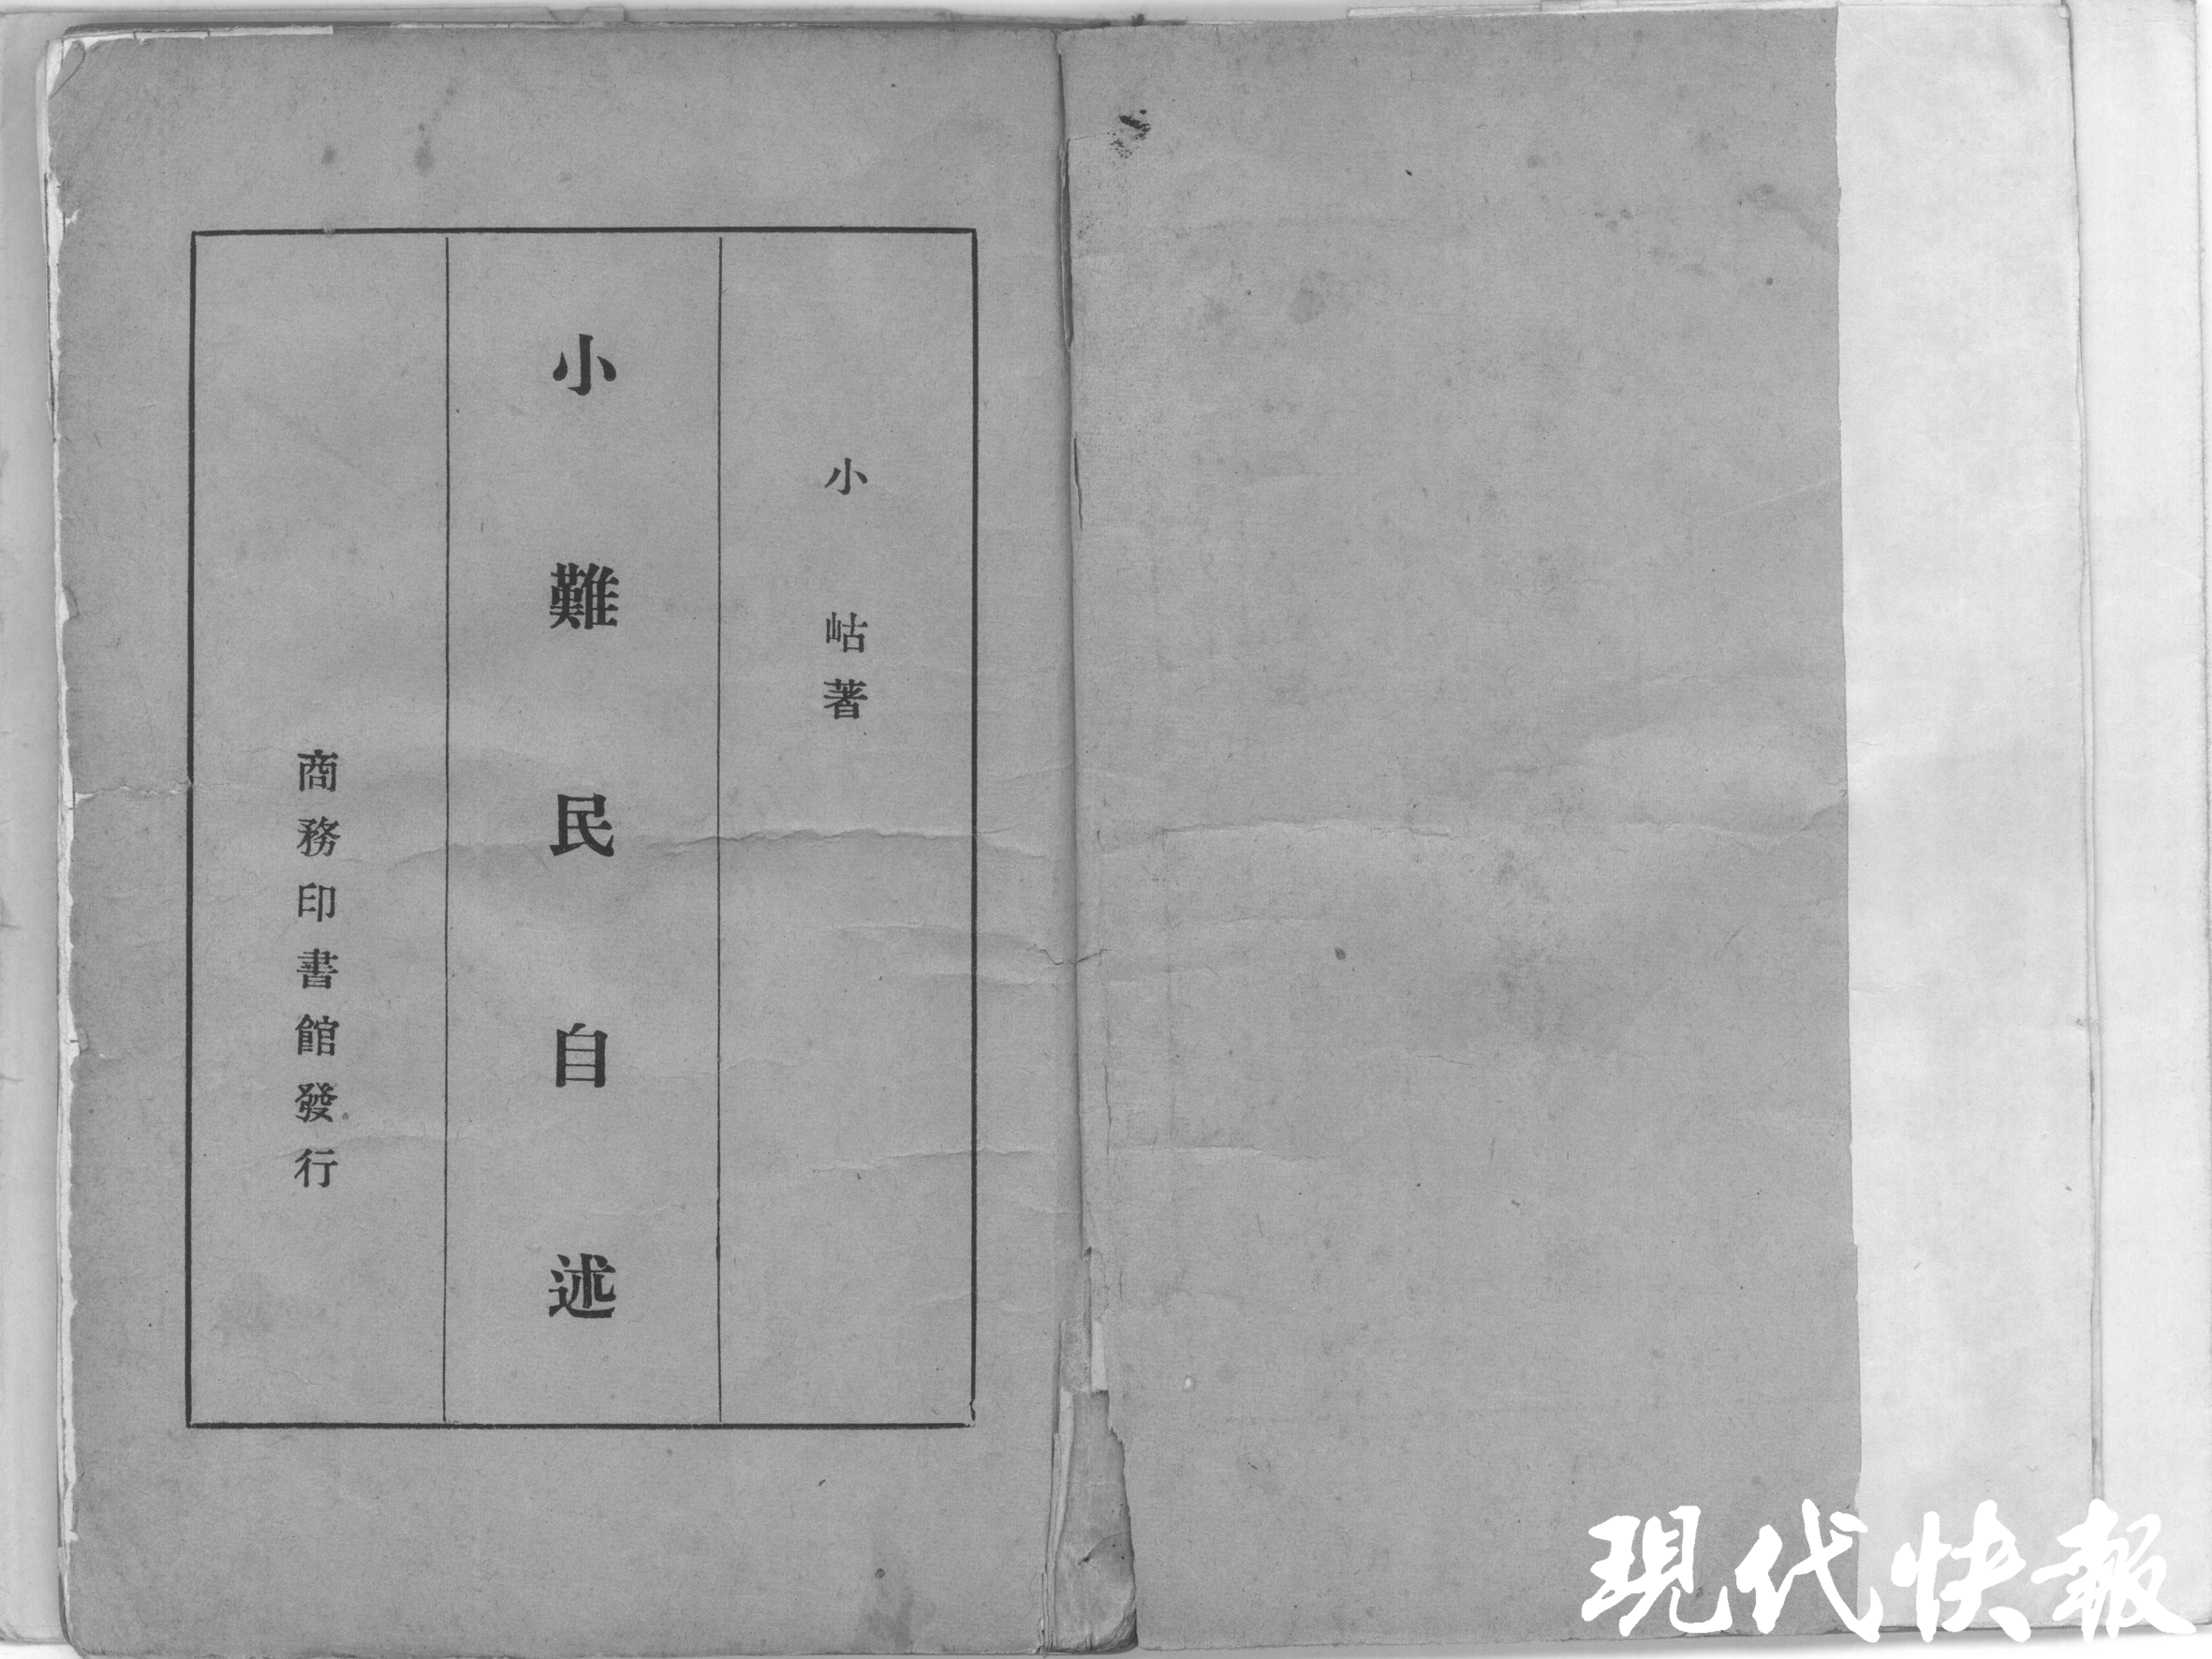 小岵著
小難民自述
商務印書館發行
現代快報